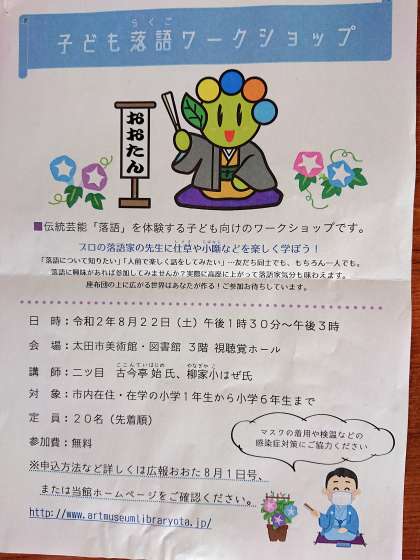 らくご
子ども落語ワークショップ
おおたん
■伝統芸能「落語」を体験する子ども向けのワークショップです。
プロの落語家の先生に仕草や小噺などを楽しく学ぼう！
「落語について知りたい」「人前で楽しく話をしてみたい」…友だち同士でも、もちろん一人でも。
落語に興味があれば参加してみませんか？実際に高座に上がって落語家気分も味わえます。
座布団の上に広がる世界はあなたが作る！ご参加お待ちしています。
日　時：令和2年8月22日（土）午後1時30分～午後3時
会　場：太田市美術館・図書館　3階 視聴覚ホール
ここんていはじめ　やなぎやこ
講　師：二ツ目　古今亭始氏、柳家小はぜ氏
対　象：市内在住・在学の小学1年生から小学6年生まで
定　員：20名（先着順）
参加費：無料
※申込方法など詳しくは広報おおた8月1日号、
または当館ホームページをご確認ください。
http://www.artmuseumlibraryota.jp/
マスクの着用や検温などの
感染症対策にご協力ください